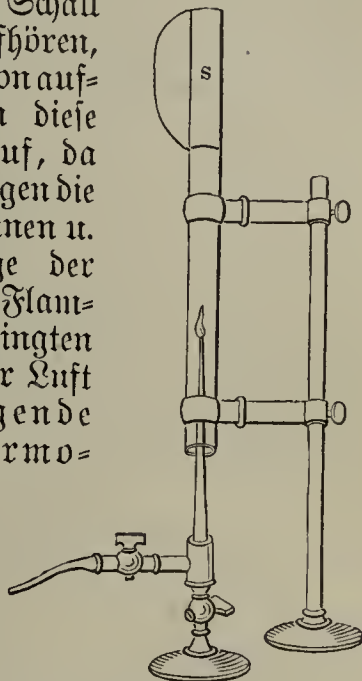 Schall
fhören,
on auf=
n diese
uf, da
gen die
nen u.
ge der
Flam=
ingten
r Luft
gende
rmo=
s